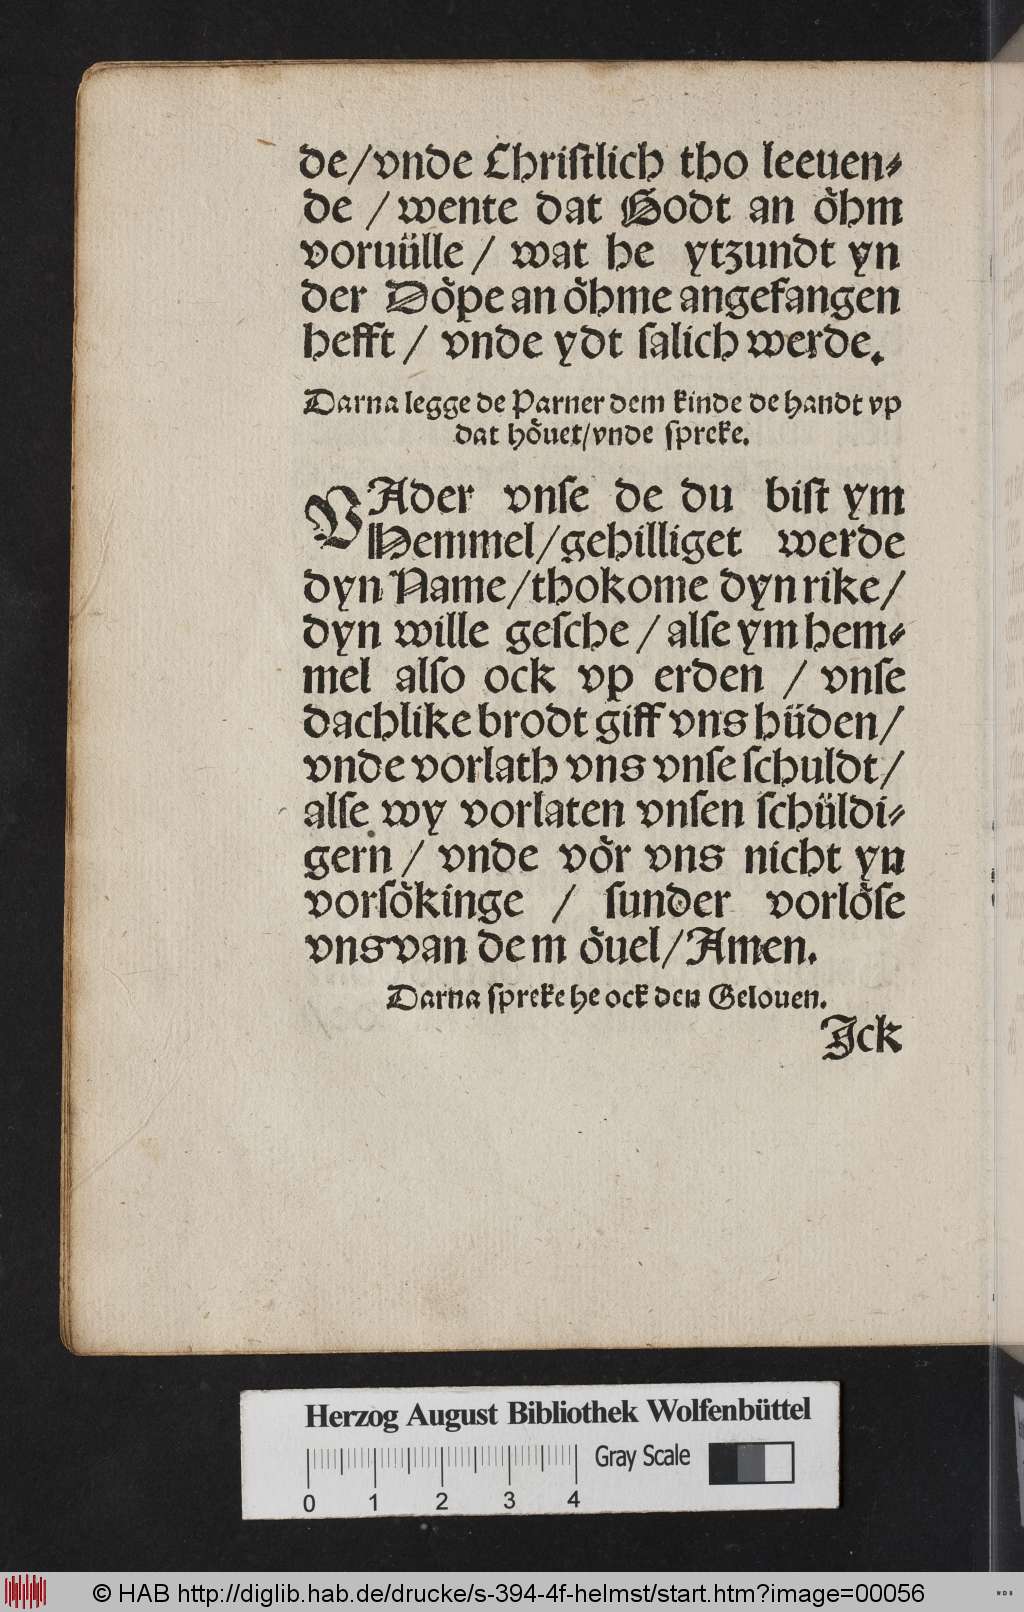 de/vnde Christlich tho leeuen⸗
de / wente dat Godt an oͤhm
voruülle / wat he ytzundt yn
der Doͤpe an oͤhme angefangen
hefft / vnde ydt salich werde.
Darna legge de Parner dem kinde de handt vp
dat hoͤuet/vnde spreke.
VAder vnse de du bist ym
Hemmel/gehilliget werde
dyn Name/thokome dyn rike/
dyn wille gesche / alse ym hem⸗
mel also ock vp erden / vnse
dachlike brodt giff vns hüden/
vnde vorlath vns vnse schuldt/
alse wy vorlaten vnsen schüldi⸗
gern / vnde voͤr vns nicht yn
vorsoͤkinge / sunder vorloͤse
vns van dem oͤuel/Amen.
Darna spreke he ock den Gelouen.
Jck
Herzog August Bibliothek Wolfenbüttel
Gray Scale
0 1 2 3 4
© HAB http://diglib.hab.de/drucke/s-394-4f-helmst/start.htm?image=00056